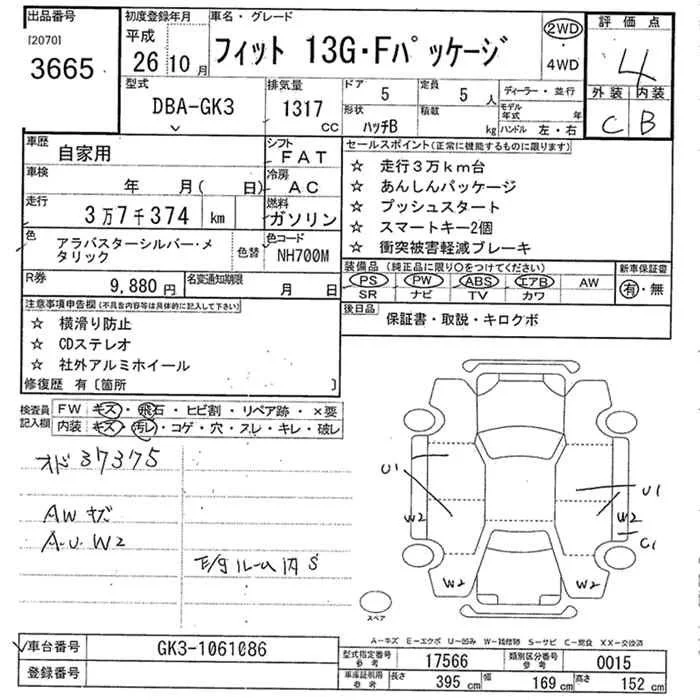 出品番号
[2070]
3665
初度登録年月
平成
26年10月
車名・グレード
フィット 13G・Fパッケージ
2WD
・
4WD
評価点
4
外装 内装
C B
型式
DBA-GK3
排気量
1317
cc
ドア 5
定員 5 人
形状 ハッチB
積載 kg
ディーラー・並行
モデル年式 年
ハンドル 左・右
車歴
自家用
シフト
FAT
車検
年 月( 日)
冷房
AC
走行
3万7千374 km
燃料
ガソリン
色
アラバスターシルバー・メタリック
色替
色コード
NH700M
R券
9,880円
名変通知期限
月 日
セールスポイント(正常に機能するものに限ります)
☆ 走行3万km台
☆ あんしんパッケージ
☆ プッシュスタート
☆ スマートキー2個
☆ 衝突被害軽減ブレーキ
装備品(純正品に限り○をつけてください)
PS PW ABS エアB AW
SR ナビ TV カワ
新車保証書
有・無
後日品
保証書・取説・キロクボ
注意事項申告欄(不具合内容等は具体的に記入して下さい)
☆ 横滑り防止
☆ CDステレオ
☆ 社外アルミホイール
修復歴 有〔箇所 〕
検査員記入欄
FW キズ・飛石・ヒビ割・リペア跡・×要
内装 キズ・汚レ・コゲ・穴・スレ・キレ・破レ
オド 37375
AW キズ
A.U.W2
E/gルーム内 S
U1
U1
W2
W2
C1
W2
W2
スペア
A-キズ E-エクボ U-凹み W-補修跡 S-サビ C-腐食 XX-交換済
車台番号
GK3-1061086
登録番号
型式指定番号
参考
17566
類別区分番号
参考
0015
車庫証明用
参考
長さ 395 cm
幅 169 cm
高さ 152 cm